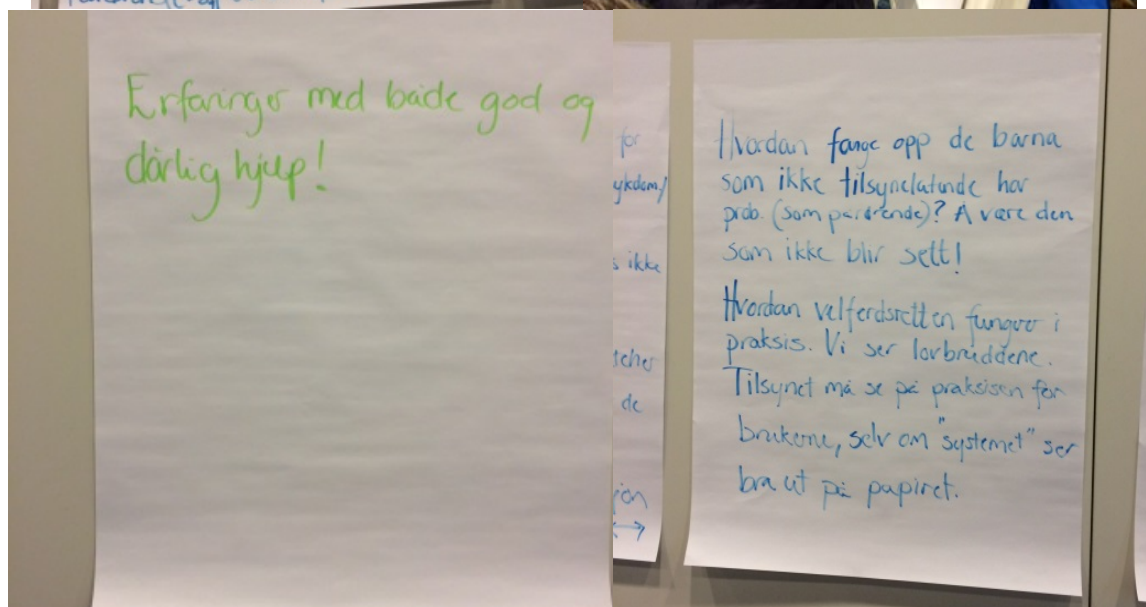 Erfaringer med både god og
dårlig hjelp!
for
ykdom/
s ikke
de
jon
Hvordan fange opp de barna
som ikke tilsynelatende har
prob. (som pårørende)? Å være den
som ikke blir sett!
Hvordan velferdsretten fungerer i
praksis. Vi ser lovbruddene.
Tilsynet må se på praksisen for
brukerne, selv om "systemet" ser
bra ut på papiret.